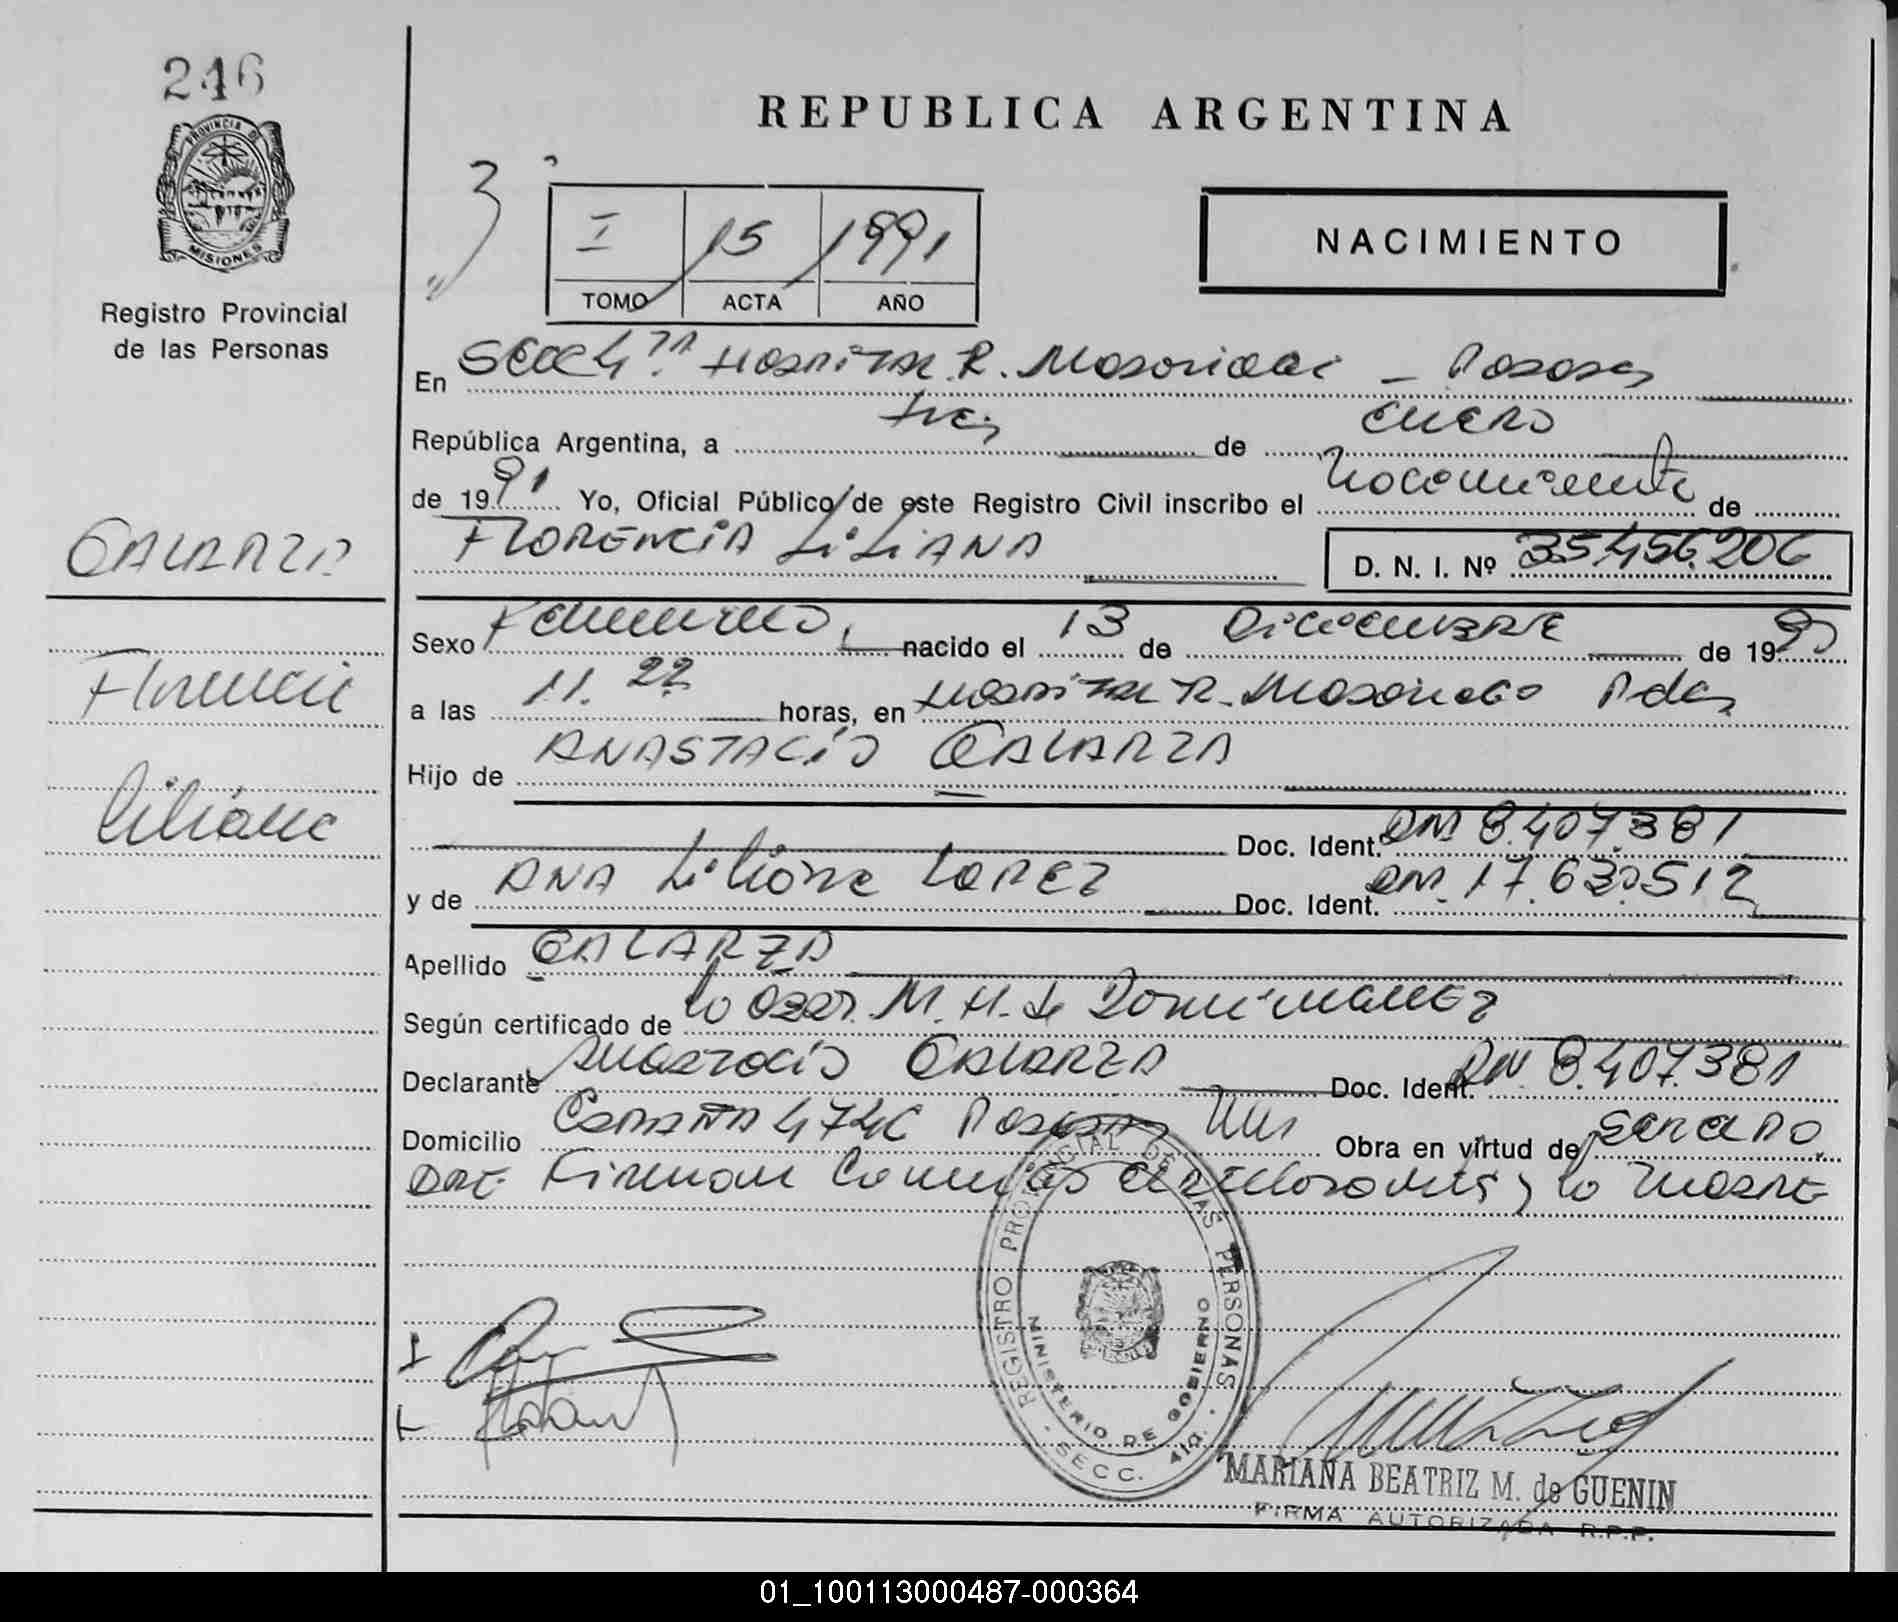 246
PROVINCIA DE
MISIONES
Registro Provincial
de las Personas
GALARZA
Florencia
Liliana
REPUBLICA ARGENTINA
3
I 15 1991
TOMO ACTA AÑO
NACIMIENTO
En Secc 4ta Hospital R. Madariaga - Posadas
República Argentina, a tres de enero
de 1991 Yo, Oficial Público de este Registro Civil inscribo el nacimiento de
FLORENCIA LILIANA D. N. I. Nº 35.456.206
Sexo Femenino, nacido el 13 de Diciembre de 1990
a las 11.22 horas, en Hospital R. Madariaga Pdas
Hijo de ANASTACIO GALARZA
Doc. Ident. DNI 8.407.381
y de ANA Liliana LOPEZ Doc. Ident. DNI 17.630.512
Apellido GALARZA
Según certificado de la Obst. M. H. de Dominguez
Declarante Anastacio GALARZA Doc. Ident. DNI 8.407.381
Domicilio 4746 Posadas Mnes Obra en virtud de ser el PADRE
Firman el declarante y la madre
REGISTRO PROVINCIAL DE LAS PERSONAS
MINISTERIO DE GOBIERNO
SECC. 4ta.
MARIANA BEATRIZ M. de GUENIN
FIRMA AUTORIZADA R.P.P.
01_100113000487-000364